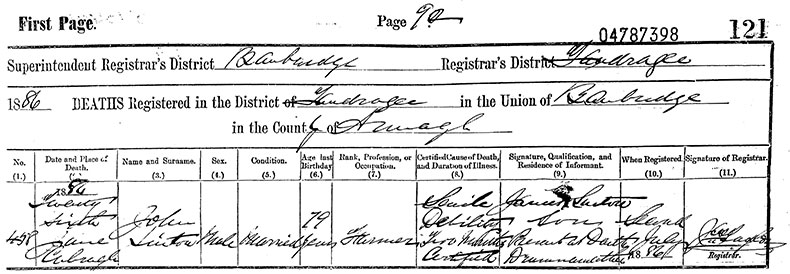 First Page.
Page 92
04787398
121
Superintendent Registrar's District Banbridge Registrar's District Tandragee
1886 DEATHS Registered in the District of Tandragee in the Union of Banbridge
in the County of Armagh
No. (1.)
Date and Place of Death. (2.)
Name and Surname. (3.)
Sex. (4.)
Condition. (5.)
Age last Birthday (6.)
Rank, Profession, or Occupation. (7.)
Certified Cause of Death, and Duration of Illness. (8.)
Signature, Qualification, and Residence of Informant. (9.)
When Registered. (10.)
Signature of Registrar. (11.)
498
1886
Twenty
Sixth
June
John
Sinton
Male
Married
79
years
Farmer
Senile
Debility
Two Months
Certified
James Sinton
Son
Present at Death
Second
July
1886
Registrar.